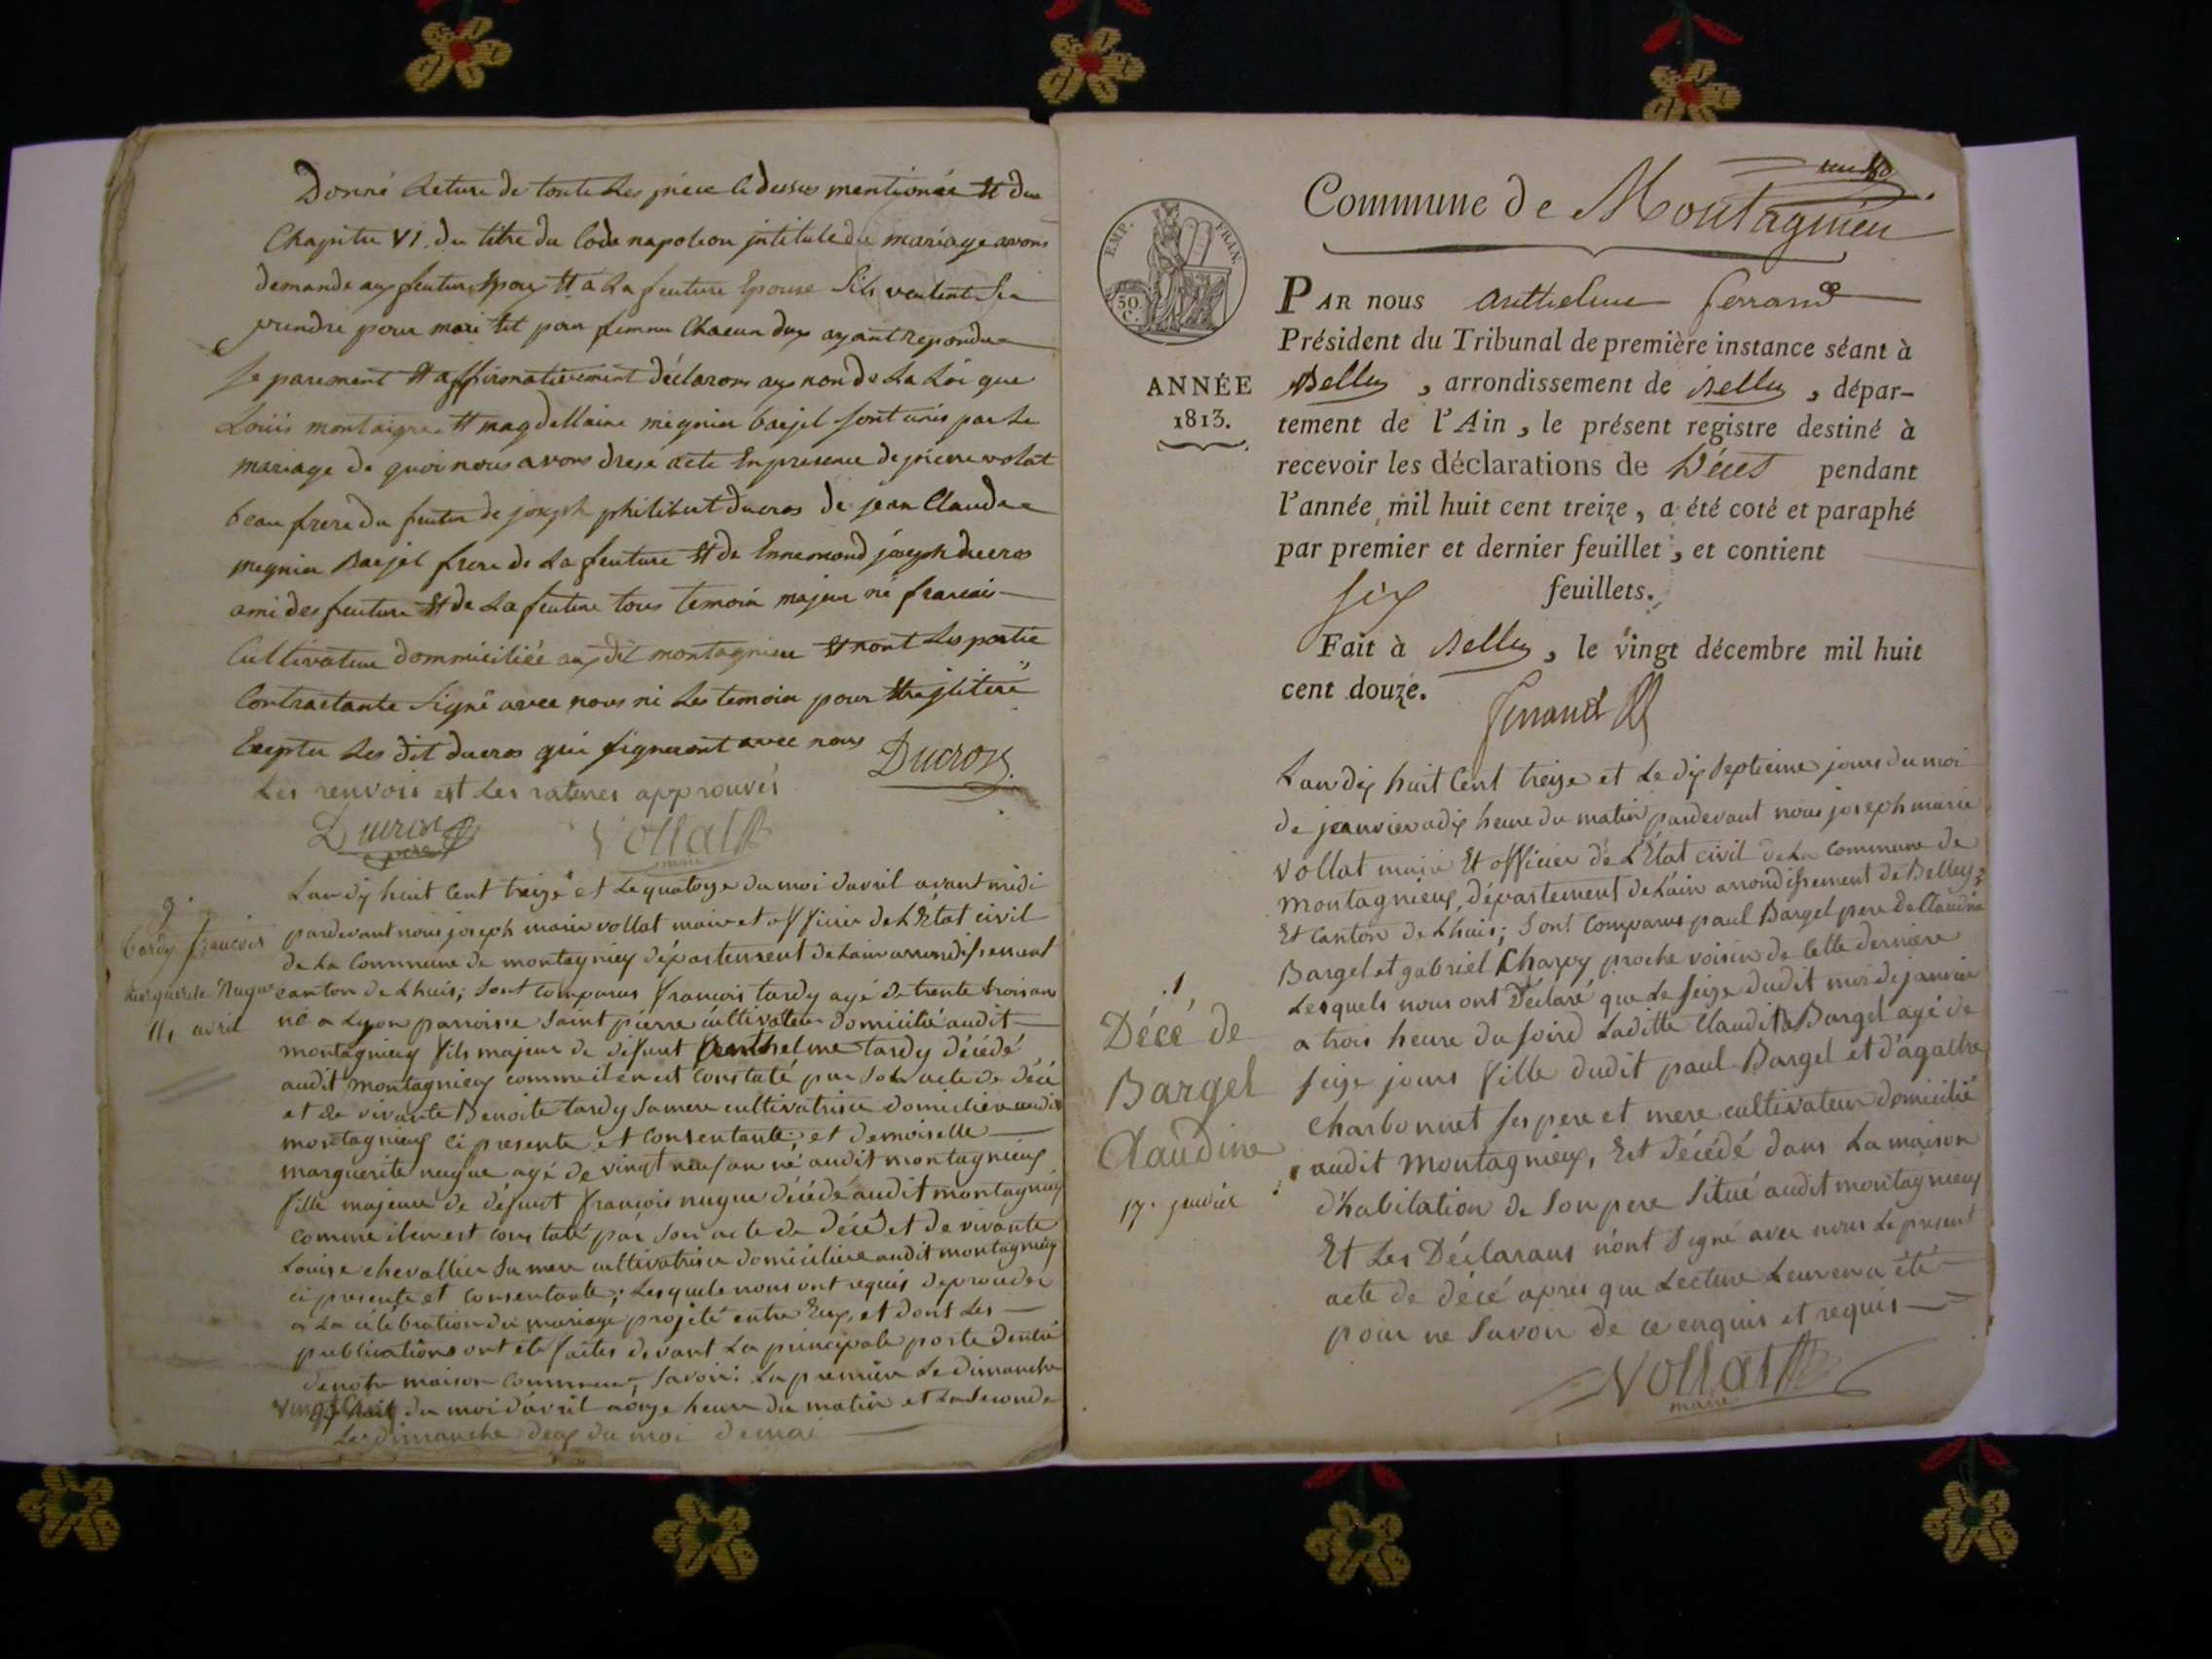 Donné Leture de toute Les piece ci dessus mentionée Et du
Chapitre VI. du titre du Code napoleon jntitule du mariage avons
demande aux feutur Epoux Et a La feuture Epouse sils veulent se
prendre pour mari Et pour femme Chacun deux ayant Repondue
separement Et affirmativement déclarons aux non de La Loi que
Louis montaigne Et magdellaine megnier barjel sont unis par Le
mariage de quoi nous avons dresé acte En presence de pierre volat
beau frere du feutur de joseph philibert ducros de jean Claude
megnier Barjel frere de La feuture Et de Ennemond joseph ducros
ami des feuture Et de La feuture tous temoin majeur né francais
Cultivateur dommiciliée aux dit montagnieu Et nont Les partie
Contractante signé avec nous ni Les temoin pour
Excepter Les dit ducros qui signeront avec nous
Ducros
Les renvois est Les ratures approuvés
Ducros père
Vollat
maire
Lan dix huit Cent treize et Le quatorze du moi davril avant midi
9.
pardevant nous joseph marie vollat maire et officier de L'Etat civil
tardy francois
de La Commune de montagnieux département de Lain arrondissement
Marguerite Nugue
canton de Lhuis; sont Comparus francois tardy agé de trente trois ans
14 avril
né a Lyon parroisse saint pierre cultivateur domicilié audit
montagnieux fils majeur de défunt Anthelme tardy décédé
audit montagnieux comme il en est Constaté par son acte de décé
et de vivante Benoite tardy sa mere cultivatrice domiciliée audit
montagnieux ci presente et Consentante; et demoiselle
marguerite nugue agé de vingt neuf an né audit montagnieux
fille majeure de défunt francois nugue décédé audit montagnieux
comme il en est constaté par son acte de décé et de vivante
Louise chevallier sa mere cultivatrice domiciliée audit montagnieux
ci presente et consentante; Lesquels nous ont requis de proceder
a La célébration du mariage projeté entre Eux, et dont Les
publications ont été faites devant La principale porte dentré
de notre maison commune, savoir: La premiere Le dimanche
vingt cinq du moi davril a onze heure du matin et La seconde
Le dimanche deux du moi de mai
Commune de Montagnieu
EMP. FRAN.
50. C.
ANNÉE
1813.
PAR nous Anthelme ferrand
Président du Tribunal de première instance séant à
Belley, arrondissement de Belley, dépar-
tement de l'Ain, le présent registre destiné à
recevoir les déclarations de Décès pendant
l'année mil huit cent treize, a été coté et paraphé
par premier et dernier feuillet, et contient
six feuillets.
Fait à Belley, le vingt décembre mil huit
cent douze.
ferrand
Lan dix huit Cent treize et Le dix septieme jours du moi
de jeanvier a dix heure du matin pardevant nous joseph marie
vollat maire Et officier de L'Etat civil de La commune de
montagnieux, département de Lain arrondissement de Belley
Et Canton de Lhuis; sont Comparus paul Bargel pere de Claudine
Bargel et gabriel Charpy proche voisin de Cette derniere
Lesquels nous ont Déclaré que Le seize dudit moi de janvier
a trois heure du soird Laditte Claudine Bargel agé de
seize jours fille dudit paul Bargel et d'agathe
charbonnet ses pere et mere cultivateur domicilié
audit montagnieux, Est décédé dans La maison
d'habitation de son pere situé audit montagnieux
Et Les Déclarans n'ont signé avec nous Le present
acte de décé apres que Lecture Leur en a été
pour ne savoir de ce enquis et requis
.1
Décé de
Bargel
Claudine
17. janvier
Vollat
maire